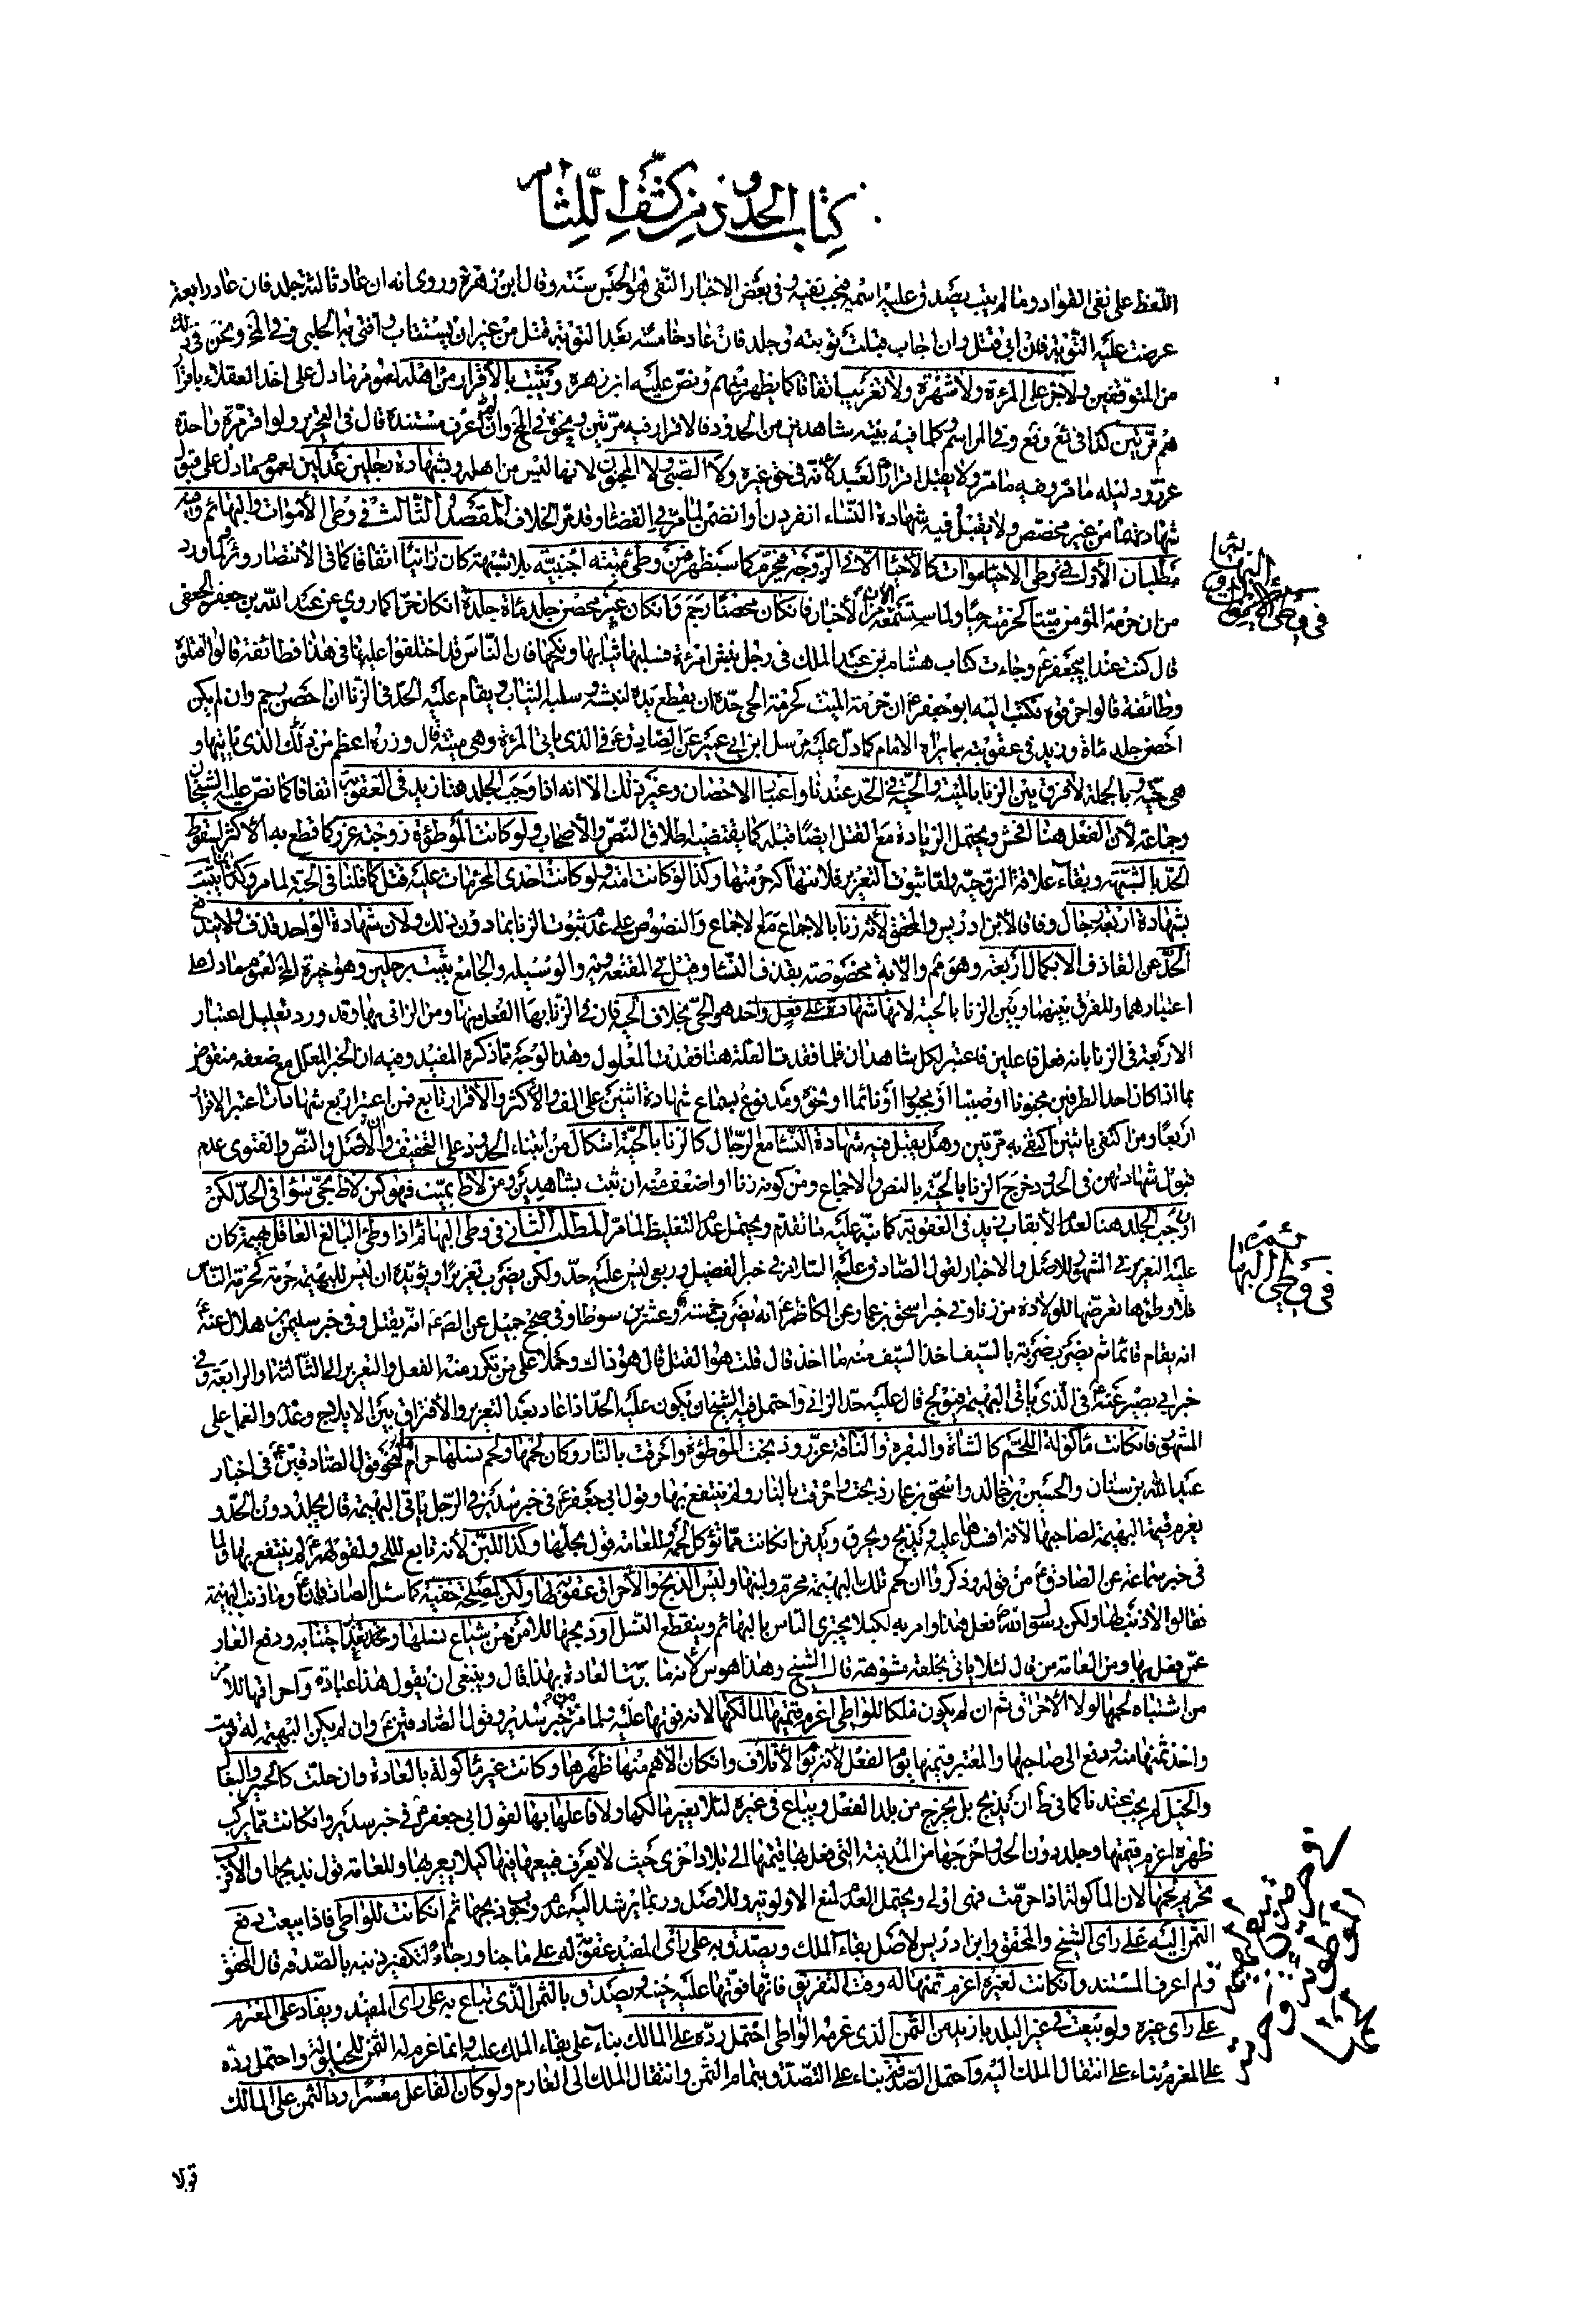 كتاب الحدود من كشف اللثام
اللفظ على نفي القواد وما لم يتب يصدق عليه اسمه فيجب نفيه وفي بعض الاخبار النفي هو الحبس سنته وقال ابن زهرة وروى انه ان عاد ثالثة جلد فان عاد رابعة
عرضت عليه التوبة فان ابى قتل وان اجاب قبلت توبته وجلد فان عاد خامسة بعد التوبة قتل من غير ان يستتاب وافتى به الحلبي وفي المخ ونحن في ذلك
من المتوقفين ولا جز على المرءة ولا شهرة ولا تغريب اتفاقا كما يظهر منهم ونص عليه ابن زهرة ويثبت بالاقرار من اهله لعموم ما دل على اخذ العقلاء باقرار
هم مرتين كذا في يع وئع وفي المراسم وكلما فيه بينة شاهدين من الحدود فالاقرار فيه مرتين ونحوه في المخ وان لم اعرف مستنده قال في التحرير ولو اقر مرة واحدة
عزر ودليله ما مر وفيه ما مر ولا يقبل اقرار العبد لانه في حق غيره ولا الصبي ولا المجنون لانهما ليس من اهله وبشهادة رجلين عدلين لعموم ما دل على قبول
شهادتهما من غير مخصص ولا يقبل فيه شهادة النساء انفردن او انضممن لما مر في القضاء وقد مر الخلاف المقصد الثالث في وطي الاموات والبهائم وفيه
مطلبان الاول في وطي الاموات كالاحياء الا في الزوجة محرم كما سيظهر فمن وطئ ميتة اجنبية بلا شبهة كان زانيا اتفاقا كما في الانتصار وئر لما ورد
من ان حرمة المؤمن ميتا كحرمته حيا ولما ستسمعه الان من الاخبار فان كان محصنا رجم وان كان غير محصن جلد مائة جلدة ان كان حرا كما روي عن عبد الله بن جعفر الجعفي
قال كنت عند ابيجعفر ع وجاءت كتاب هشام بن عبد الملك في رجل نبش امرءة فسلبها ثيابها ونكحها فان الناس قد اختلفوا علينا في هذا فطائفة قالوا اقتلوه
وطائفة قالوا احرقوه فكتب اليه ابو جعفر ع ان حرمة الميت كحرمة الحي حده ان يقطع يده لنبشه وسلبه الثياب ويقام عليه الحد في الزنا ان احصن رجم وان لم يكن
احصن جلد مأة ويزيد في عقوبته بما يراه الامام كما دل عليه مرسل ابن ابي عمير عن الصادق ع في الذي يأتي المرءة وهي ميتة قال وزره اعظم من ذلك الذي يأتيها و
هي حية وبالجملة لا فرق بين الزنا بالميتة والحية في الحد عندنا واعتبار الاحصان وغير ذلك الا انه اذا وجب الجلد هنا زيد في العقوبة اتفاقا كما نص عليه الشيخان
وجماعة لأن الفعل هنا افحش ويحتمل الزيادة مع القتل ايضا قبله كما يقتضيه اطلاق النص والاصحاب ولو كانت الموطوئة زوجته عزر كما قطع به الاكثر لسقوط
الحد بالشبهة وبقاء علاقة الزوجية واما ثبوت التعزير فلانتهاك حرمتها وكذا لو كانت امته ولو كانت احدى المحرمات عليه قتل كما قلنا في الحية لما مر وكذا يثبت
بشهادة اربعة رجال وفاقا لابن ادريس والمحقق لأنه زنا بالاجماع مع الاجماع والنصوص على عدم ثبوت الزنا بما دون ذلك ولان شهادة الواحد قذف ولا يندفع
الحد عن القاذف الا بكمال اربعة وهو ثم والاية مخصوصة بقذف النساء وقيل في المقنعة ويه والوسيلة والجامع يثبت برجلين وهو خيرة المخ لعموم ما دل على
اعتبارهما وللفرق بينها وبين الزنا بالحية لانها شهادة على فعل واحد هو الحي بخلاف الحية فان في الزنا بها الفعل منها ومن الزاني بها وقد ورد تعليل اعتبار
الاربعة في الزنا بانه فعل فاعلين فاعتبر لكل شاهدان فلما فقدت العلة هنا فقدت المعلول وهذا الوجه مما ذكره المفيد وفيه ان الخبر المعلل مع ضعفه منقوض
بما اذا كان احد الطرفين مجنونا او صبيا او مجبورا او نائما او نحوه وقد نوع بسماع شهادة اثنين على الف والاكثر والاقرار تابع فمن اعتبر اربع شهادات اعتبر الاقرار
اربعا ومن اكتفى باثنين اكتفى به مرتين وهل يقبل فيه شهادة النساء مع الرجال كالزنا بالحية اشكال من ابتناء الحدود على التخفيف وان الاصل والنص والفتوى عدم
قبول شهادتهن في الحدود خرج الزنا بالحية بالنص والاجماع ومن كونه زنا او اضعف منه ان ثبت بشاهدين ومن لاط بميت فهو كمن لاط بحي سواء في الحد لكن
ان وجب الجلد هنا لعدم الايقاب زيد في العقوبة كما نبه عليه ما تقدم ويحتمل عدم التغليظ لما مر المطلب الثاني في وطي البهائم اذا وطئ البالغ العاقل بهيمة كان
عليه التعزير في المشهور للاصل والاخبار لقول الصادق عليه السلام في خبر الفضيل وربعي ليس عليه حد ولكن يضرب تعزيرا ويؤيده ان ليس للبهيمة حرمة كحرمة الناس
فلا وطؤها تعرضها للولادة من زنا وفي خبر اسحق بن عمار وعن الكاظم ع انه يضرب خمسة وعشرين سوطا وفي صحيح جميل عن الص ع انه يقتل وفي خبر سليمن بن هلال عنه ع
انه يقام قائما ثم يضرب ضربة بالسيف اخذ السيف منه ما اخذ قال قلت هو القتل قال هو ذاك وحملا على من تكرر منه الفعل والتعزير الى الثالثة والرابعة وفي
خبر ابي بصير عنه ع في الذي يأتي البهيمة فيولج قال عليه حد الزاني واحتمل فيه الشيخان يكون عليه الحد اذا عاد بعد التعزير والافتراق بين الايلاج وعدمه والعمل على
المشهور فان كانت مأكولة اللحم كالشاة والبقرة والناقة عزر وذبحت الموطوئة واحرقت بالنار وكان لحمها ولحم نسلها حرام لنحو قول الصادقين ع في اخبار
عبد الله بن سنان والحسين بن خالد واسحق بن عمار ذبحت واحرقت بالنار ولم ينتفع بها وقول ابي جعفر ع في خبر سدير في الرجل يأتي البهيمة قال يجلد دون الحد و
يغرم قيمة البهيمة لصاحبها لأنه افسدها عليه وتذبح وتحرق وتدفن ان كانت مما تؤكل لحمه وللعامة قول بحلها وكذا اللبن لأنه تابع للحم ولقولهم ع لم ينتفع بها ولما
في خبر سماعه عن الصادق ع من قوله وذكروا ان لحم تلك البهيمة محرم ولبنها وليس الذبح والاحراق عقوبة لها ولكن لمصلحة خفية كما سئل الصادق ع وما ذنب البهيمة
فقال لا ذنب لها ولكن رسول الله ص فعل هذا وامر به لكيلا يجتزى الناس بالبهائم وينقطع النسل او ذبحها للامن من شياع نسلها وتعذر اجتنابه ودفع العار
عمن فعل بها ومن العامة من قال لئلا يأتي بخلقة مشوهة قال الشيخ وهذا هوس لانه ما جرت العادة بهذا قال وينبغي ان يقول هذا عبادة واحراقها للامن
من اشتباه لحمها لولا الاحراق ثم ان لم يكون ملكا للواطي اغرم قيمتها لمالكها لانه فوتها عليه ولما مر من خبر سدير وقول الصادقين ع وان لم يكن البهيمة له قومت
واخذ ثمنها منه ودفع الى صاحبها والمعتبر قيمتها يوم الفعل لأنه يوم الاتلاف وان كان الاهم منها ظهرها وكانت غير مأكولة بالعادة وان حلت كالحمير والبغال
والخيل لم يجب عندنا كما في ط ان يذبح بل يخرج من بلد الفعل ويباع في غيره لئلا يعير مالكها ولا فاعلها بها لقول ابي جعفر ع في خبر سدير وان كانت مما يركب
ظهره اغرم قيمتها وجلد دون الحد واخرجها من المدينة التي فعل بها فيها الى بلاد اخرى حيث لا يعرف فيبيعها فيها كيلا يعير بها وللعامة قول بذبحها والاقرب
تحريم لحمها لان المأكولة اذا حرمت فهي اولى ويحتمل العدم لمنع الاولوية وللاصل وربما يرشد اليه عدم وجوب ذبحها ثم ان كانت للواطي فاذا بيعت دفع
الثمن اليه على رأى الشيخ والمحقق وابن ادريس لأصل بقاء الملك ويصدق به على رأى المفيد عقوبة له على ما جنا ورجاء لتكفير ذنبه بالصدقة قال المحقق
ولم اعرف المستند وان كانت لغيره اغرم ثمنها له وقت التفريق فانها فوتها عليه حينئذ ويصدق بالثمن الذي تباع به على رأى المفيد ويعاد على المغرم
على رأى غيره ولو بيعت في غير البلد بازيد من الثمن الذي غرمه الواطي احتمل رده على المالك بناء على بقاء الملك عليه وانما غرم له الثمن للحيلولة واحتمل رده
على المغرم بناء على انتقال الملك اليه واحتمل الصدقة بناء على التصدق بتمام الثمن وانتقال الملك الى الغارم ولو كان الفاعل معسرا رد الثمن على المالك
في وطي الاموات
في وطي البهائم
قولا